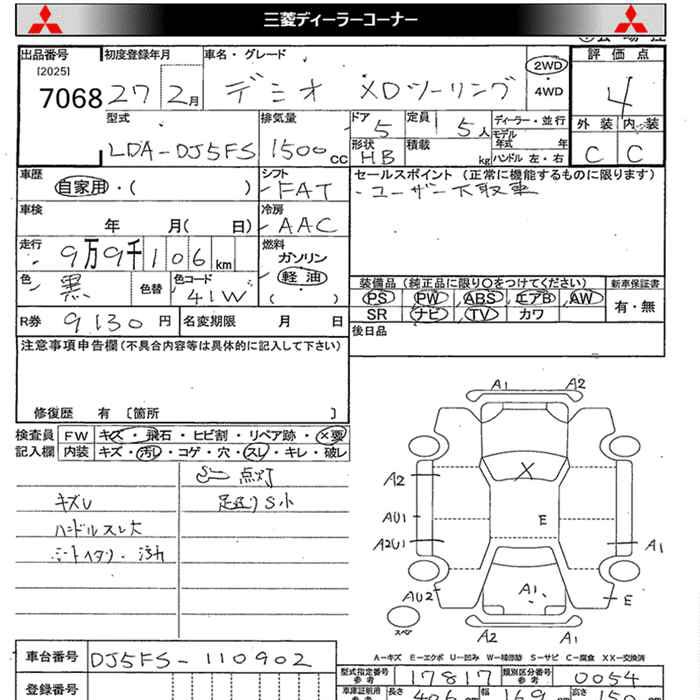 三菱ディーラーコーナー
出品番号 [2025] 7068
初度登録年月 27 2月
車名・グレード デミオ XDツーリング
2WD
・
4WD
評価点 4
外装 内装
C C
型式 LDA-DJ5FS
排気量 1500cc
ドア 5
定員 5人
形状 HB
積載 kg
ディーラー・並行
モデル年式 年
ハンドル 左・右
車歴 自家用・( )
シフト FAT
セールスポイント (正常に機能するものに限ります)
ユーザー下取車
車検 年 月( 日)
冷房 AAC
走行 9万9千106km
燃料 ガソリン
軽油
( )
色 黒
色替
色コード 41W
装備品 (純正品に限り○をつけてください)
新車保証書
PS PW ABS エアB AW
SR ナビ TV カワ
有・無
R券 9130円
名変期限 月 日
後日品
注意事項申告欄(不具合内容等は具体的に記入して下さい)
修復歴 有 [箇所 ]
検査員記入欄
FW キズ・飛石・ヒビ割・リペア跡・×要
内装 キズ・汚レ・コゲ・穴・スレ・キレ・破レ
点灯
キズレ 足廻りS小
ハンドルスレ大
シートヘタリ・汚れ
A1 A2
A2
AU1
A2U1
AU2
X
E
A1
A1
E
スペア
A2 A1
A-キズ E-エクボ U-凹み W-補修跡 S-サビ C-腐食 XX-交換済
車台番号 DJ5FS-110902
登録番号
型式指定番号 参考 17817
類別区分番号 参考 0054
車庫証明用 参考 長さ 406 幅 169 高さ 150